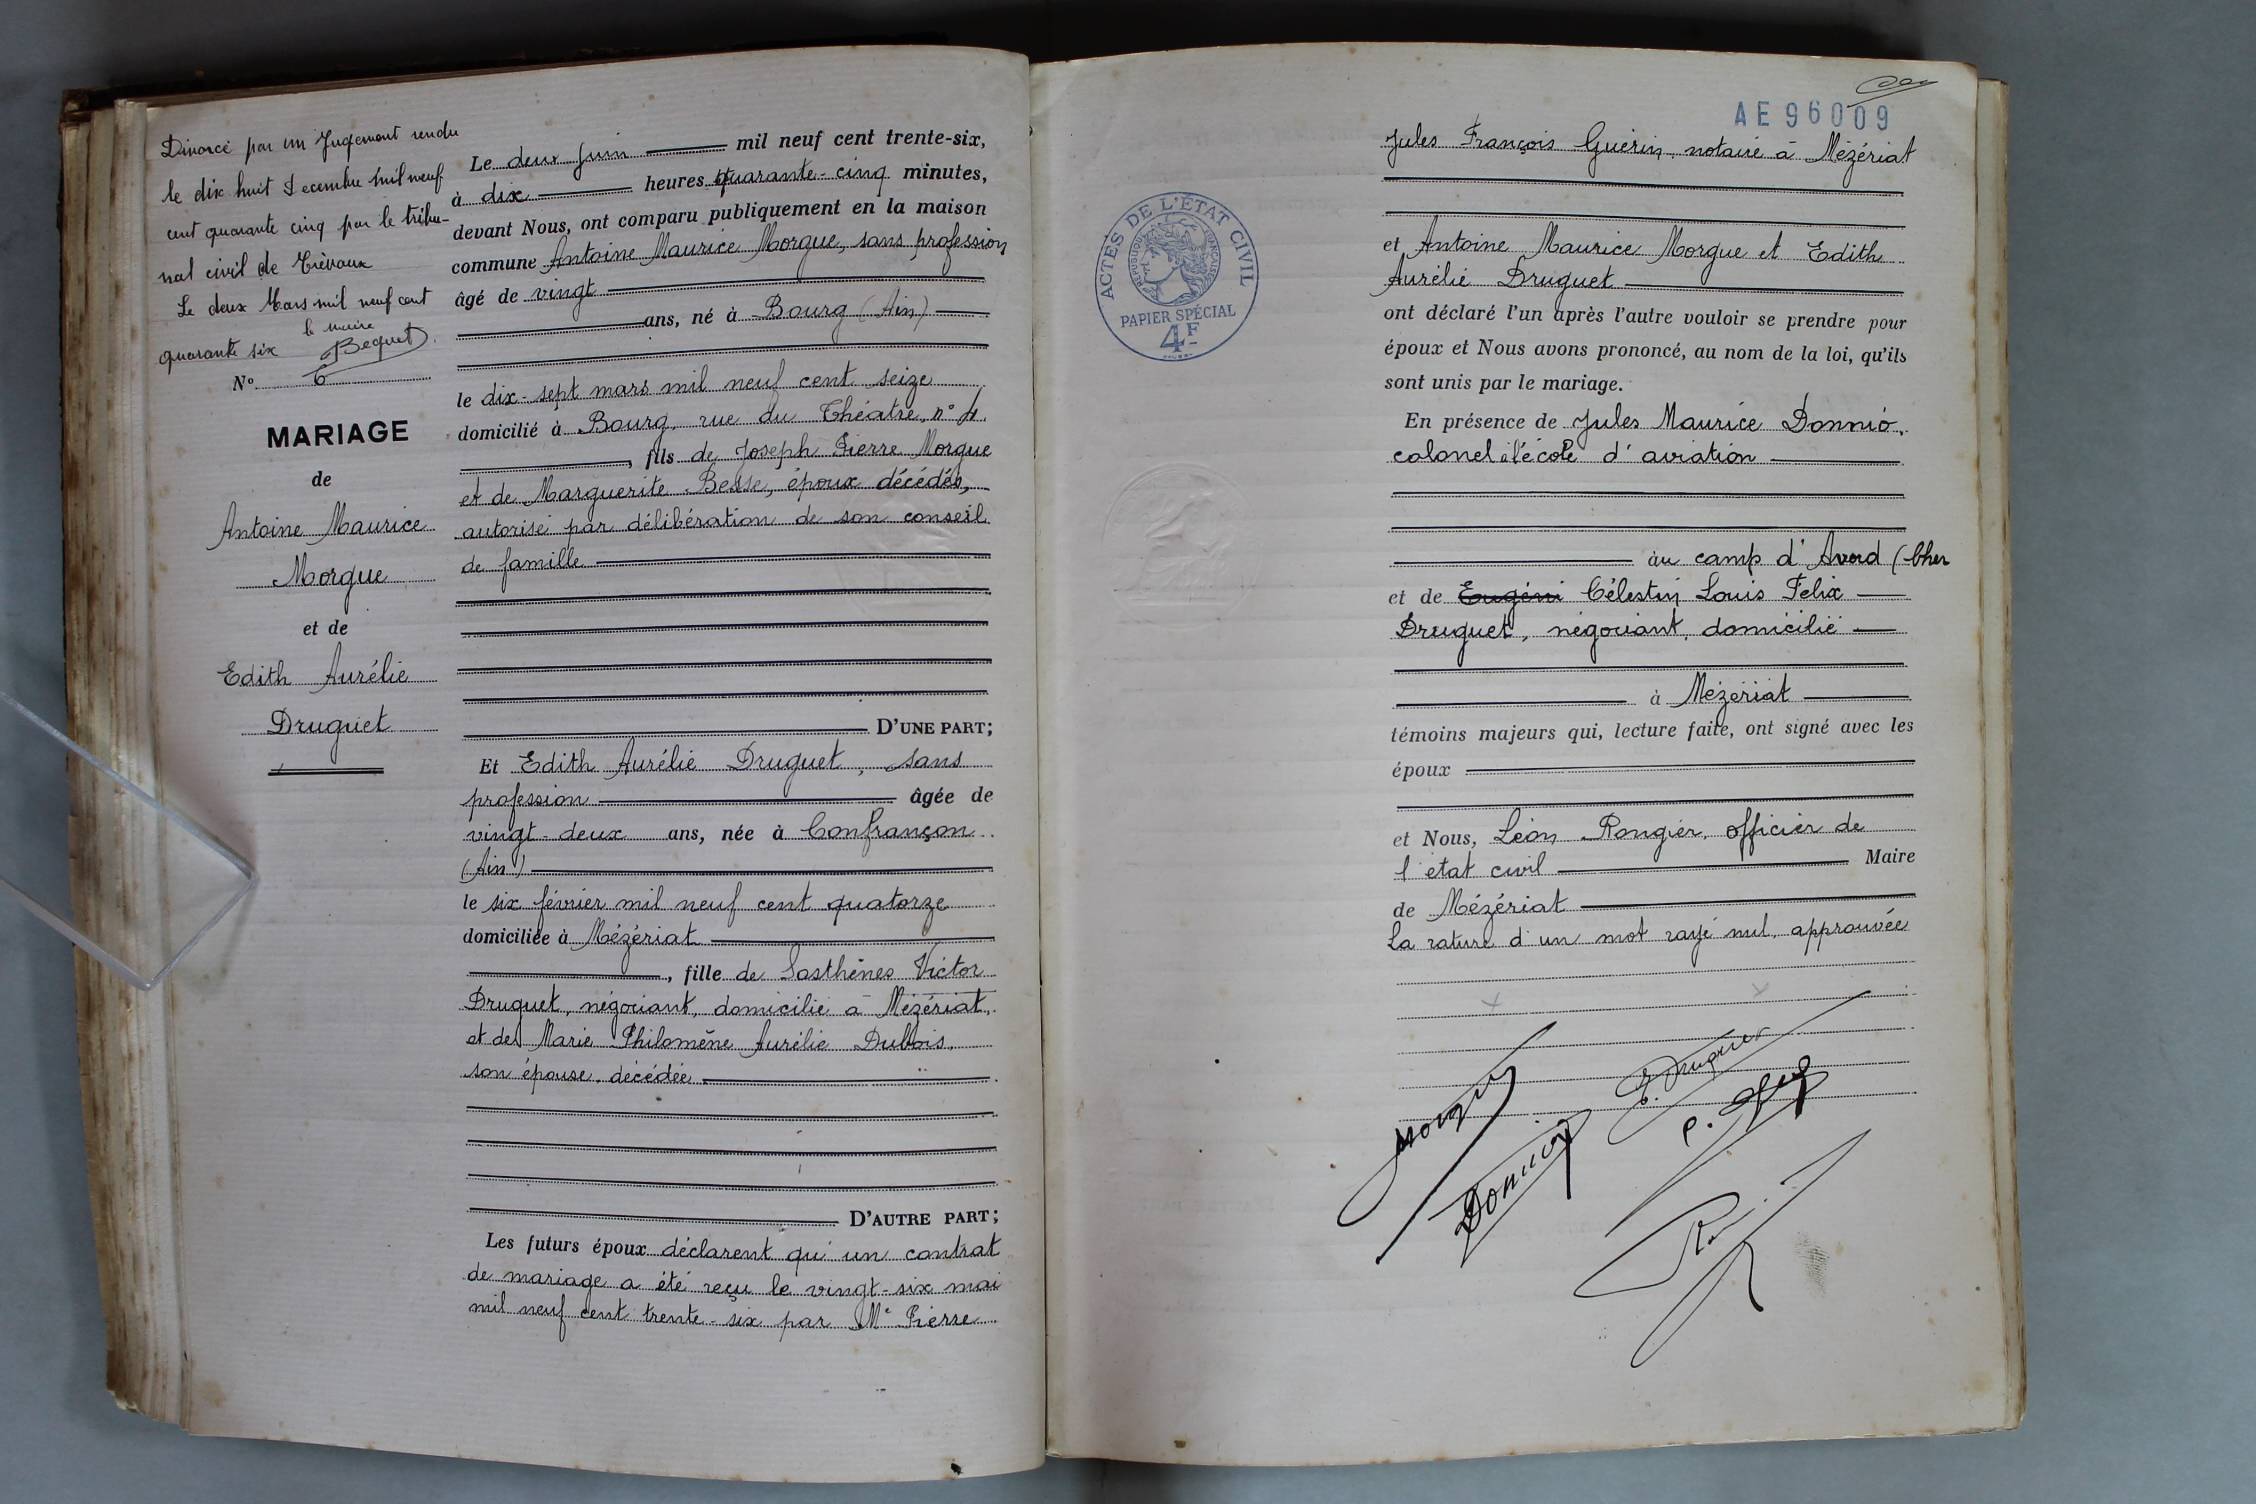 Divorcé par un Jugement rendu
le dix huit Decembre mil neuf
cent quarante cinq par le tribu-
nal civil de Trévoux
Le deux Mars mil neuf cent
quarante six
le maire
Bequet
No 6
MARIAGE
de
Antoine Maurice
Morgue
et de
Edith Aurélie
Druguet
Le deux Juin mil neuf cent trente-six,
à dix heures quarante-cinq minutes,
devant Nous, ont comparu publiquement en la maison
commune Antoine Maurice Morgue, sans profession
âgé de vingt
ans, né à Bourg (Ain)
le dix-sept mars mil neuf cent seize
domicilié à Bourg, rue du Théatre, n°
, fils de Joseph Pierre Morgue
et de Marguerite Besse, époux décédés,
autorisé par délibération de son conseil
de famille
D'UNE PART;
Et Edith Aurélie Druguet, sans
profession âgée de
vingt-deux ans, née à Confrançon
(Ain)
le six février mil neuf cent quatorze
domiciliée à Mézériat
, fille de Sosthènes Victor
Druguet, négociant, domicilié à Mézériat,
et de Marie Philomène Aurélie Dubois,
son épouse, décédée
D'AUTRE PART;
Les futurs époux déclarent qu'un contrat
de mariage a été reçu le vingt-six mai
mil neuf cent trente-six par Me Pierre
AE 96009
ACTES DE L'ÉTAT CIVIL
RÉPUBLIQUE FRANÇAISE
PAPIER SPÉCIAL
4F
Jules François Guérin, notaire à Mézériat
et Antoine Maurice Morgue et Edith
Aurélie Druguet
ont déclaré l'un après l'autre vouloir se prendre pour
époux et Nous avons prononcé, au nom de la loi, qu'ils
sont unis par le mariage.
En présence de Jules Maurice Donnio,
colonel à l'école d'aviation
au camp d'Avord (Cher
et de Eugéni Célestin Louis Félix
Druguet, négociant, domicilié
à Mézériat
témoins majeurs qui, lecture faite, ont signé avec les
époux
et Nous, Léon Rongier, officier de
l'état civil Maire
de Mézériat
La rature d'un mot rayé nul, approuvée
Morgue
E. Druguet
Donnio